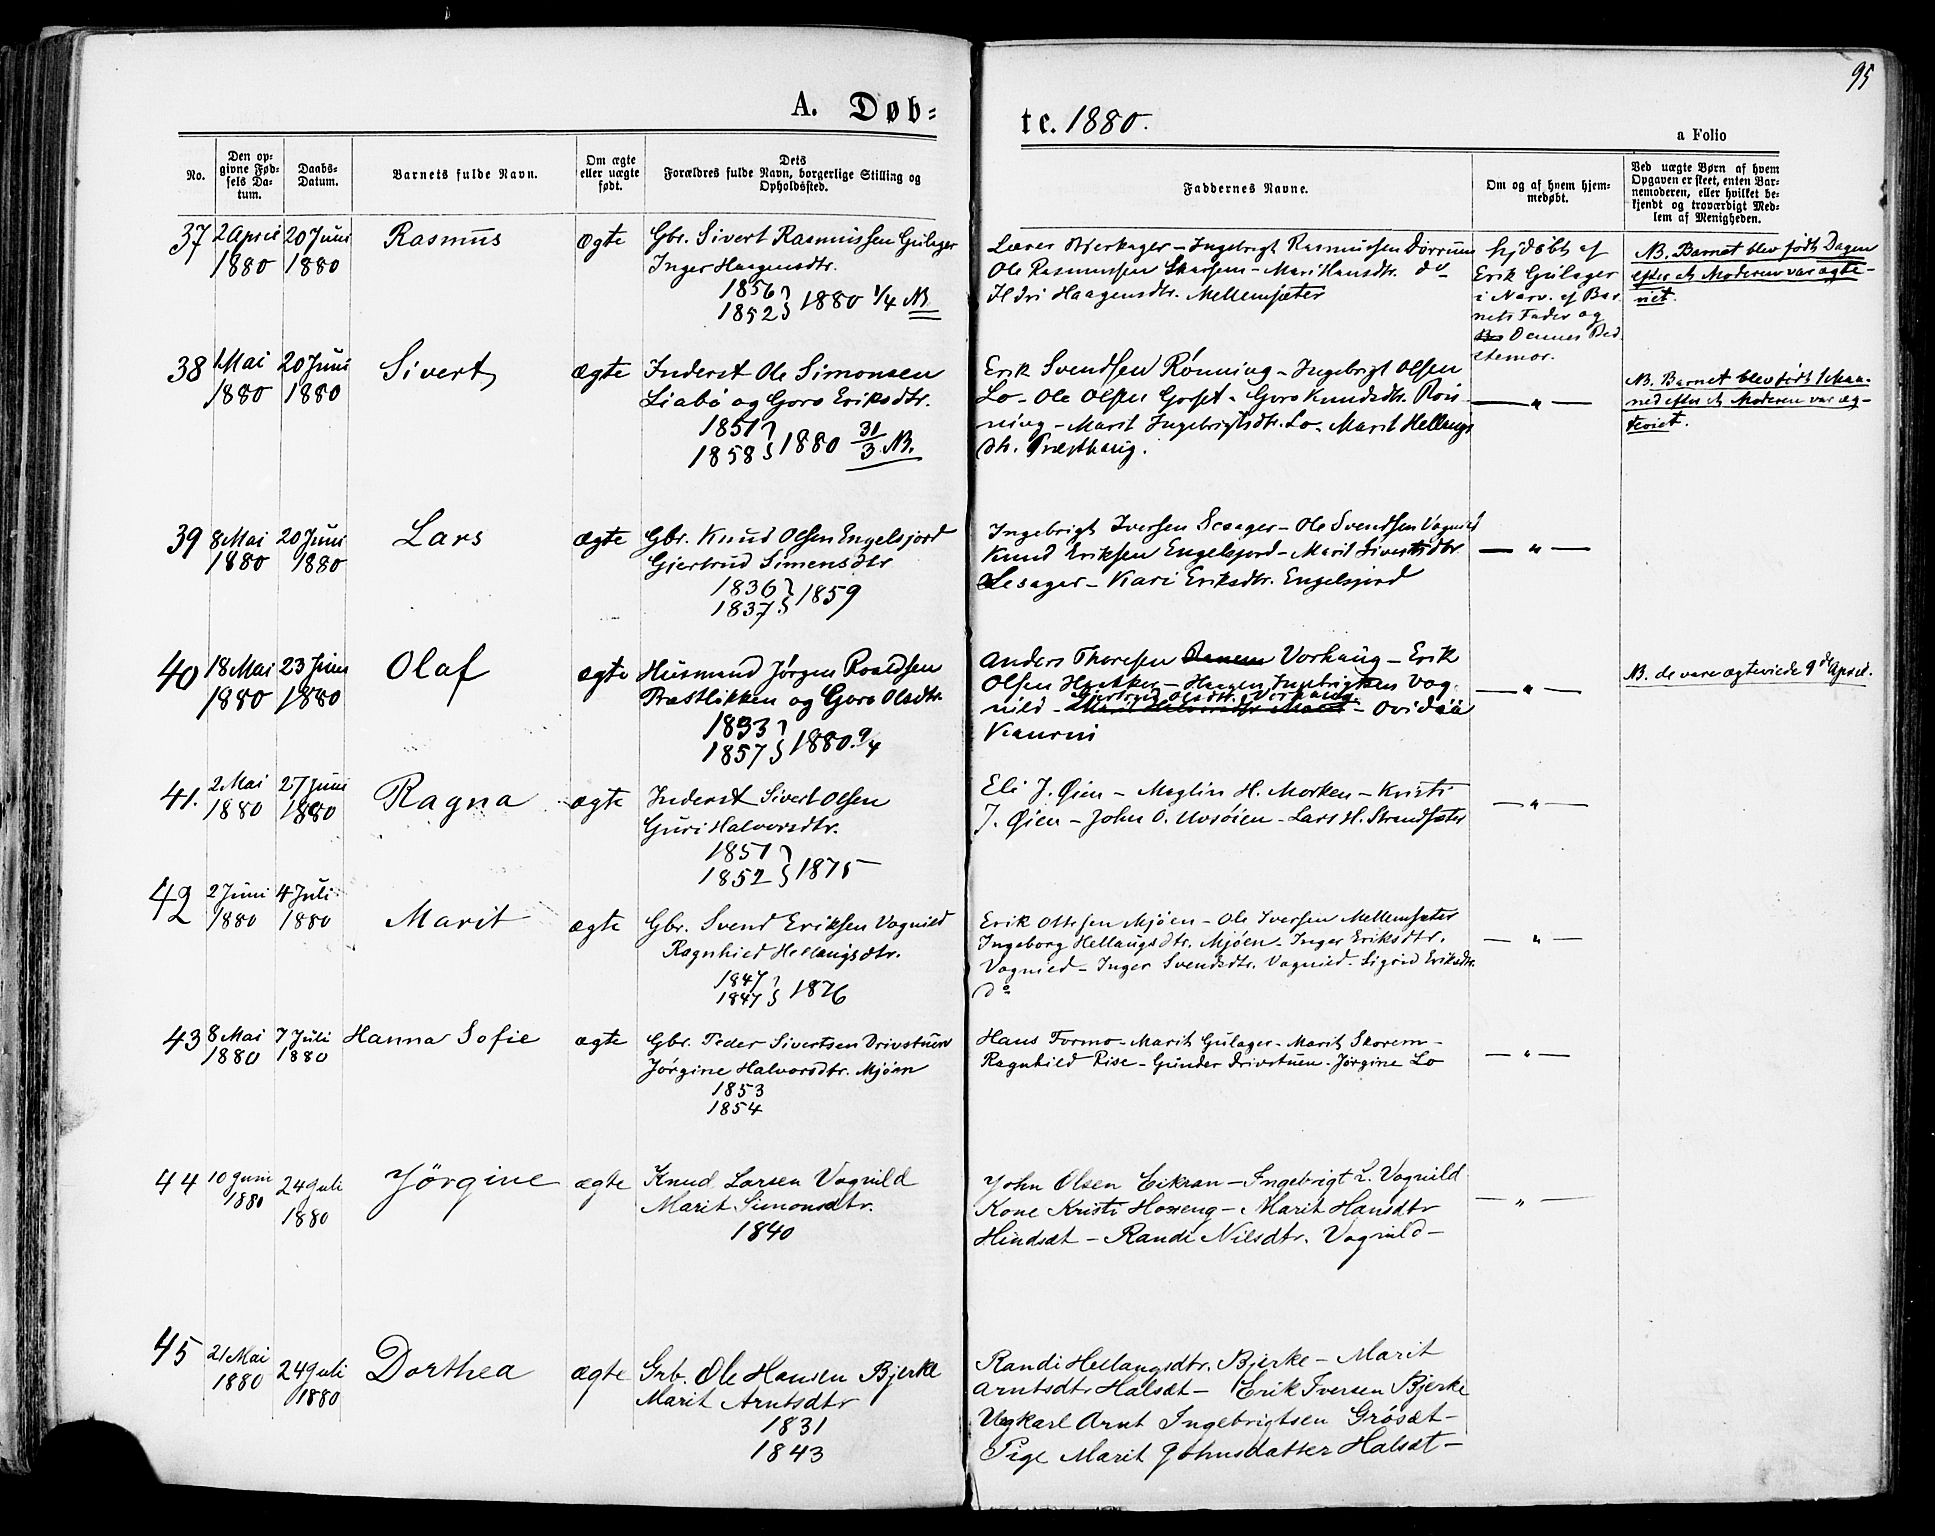 95
A. Døb=
te. 1880.
a Folio
No.
Den op-
givne Fød-
sels Da-
tum.
Daabs-
Datum.
Barnets fulde Navn.
Om ægte
eller uægte
født.
Dets
Forældres fulde Navn, borgerlige Stilling og
Opholdssted.
Faddernes Navne.
Om og af hvem hjem-
medøbt.
Ved uægte Børn af hvem
Opgaven er skeet, enten Bar-
nemoderen, eller hvilket be-
kjendt og troværdigt Med-
lem af Menigheden.
37
2 April
1880
20 Juni
1880
Rasmus
ægte
Gbr. Sivert Rasmussen Gulager
Inger Haagensdtr.
1856
1852 } 1880 1/4 NB
Lærer Bjerkager – Ingebrigt Rasmussen Dørrum
Ole Rasmussen Skarsem – Mari Hansdtr. do
Ildri Haagensdtr. Mellemsæter
hjdøbt af
Erik Gulager
i Nærv. af Bar
nets Fader og
Dennes Bed
stemor.
NB. Barnet blev født Dagen
efter at Moderen var ægte-
viet.
38
1 Mai
1880
20 Juni
1880
Sivert
ægte
Inderst Ole Simonsen
Liabø og Goro Eriksdtr.
1851
1858 } 1880 31/3 NB.
Erik Svendsen Rønning – Ingebrigt Olsen
Lo – Ole Olsen Gorset – Goro Knudsdtr. Røn-
ning – Marit Ingebrigtsdtr. Lo – Marit Hellaugs
dtr. Præsthaug.
— " —
NB. Barnet blev født 1 Maa-
ned efter at Moderen var æg-
teviet.
39
8 Mai
1880
20 Juni
1880
Lars
ægte
Gbr. Knud Olsen Engelsjord
Gjertrud Simensdtr
1836
1837 } 1859
Ingebrigt Iversen Lesager – Ole Svendsen Vognild
Knud Eriksen Engelsjord – Marit Sivertsdtr
Lesager – Kari Eriksdtr. Engelsjord
— " —
40
18 Mai
1880
23 Juni
1880
Olaf
ægte
Husmand Jørgen Roaldsen
Præstløkken og Goro Olsdtr.
1833
1857 } 1880 9/4
Anders Thoresen Vorhaug – Erik
Olsen Hæcker – Haagen Ingebrigtsen Vog-
Gjertrud Olsdtr. Vorhaug
nild – – Ovidia
— " —
NB. de vare ægteviede 9d April.
41.
2 Mai
1880
27 Juni
1880
Ragna
ægte
Inderst Sivert Olsen
Guri Halvorsdtr.
1851
1852 } 1875
Eli J. Øien – Maglin H. Morken – Kristi
J. Øien – John O. Uvsøien – Lars H. Strandsæter
— " —
42
2 Juni
1880
4 Juli
1880
Marit
ægte
Gbr. Svend Eriksen Vognild
Ragnhild Hellaugsdtr.
1847
1847 } 1876
Erik Ottesen Mjøen – Ole Iversen Mellemsæter
Ingeborg Hellaugsdtr. Mjøen – Inger Eriksdtr.
Vognild – Inger Svendsdtr. Vognild – Sigrid Eriksdtr.
do
— " —
43
8 Mai
1880
7 Juli
1880
Hanna Sofie
ægte
Gbr. Peder Sivertsen Drivstuen
Jørgine Halvorsdtr. Mjøen
1853
1854
Hans Formo – Marit Gulager – Marit Skorem –
Ragnhild Rise – Gunder Drivstuen – Jørgine Lo
— " —
44
10 Juni
1880
24 Juli
1880
Jörgine
ægte
Knud Larsen Vognild
Marit Simonsdtr.
1840
John Olsen Eikran – Ingebrigt L. Vognild
Kone Kristi Hoseng – Marit Hansdtr
Hindsæt – Randi Nilsdtr. Vognild –
— " —
45
21 Mai
1880
24 Juli
1880
Dorthea
ægte
Grb. Ole Hansen Bjerke
Marit Arntsdtr
1831
1843
Randi Hellaugsdtr. Bjerke – Marit
Arntsdtr Halsæt – Erik Iversen Bjerke
Ungkarl Arnt Ingebrigtsen Grösæt –
Pige Marit Johnsdatter Halsæt –